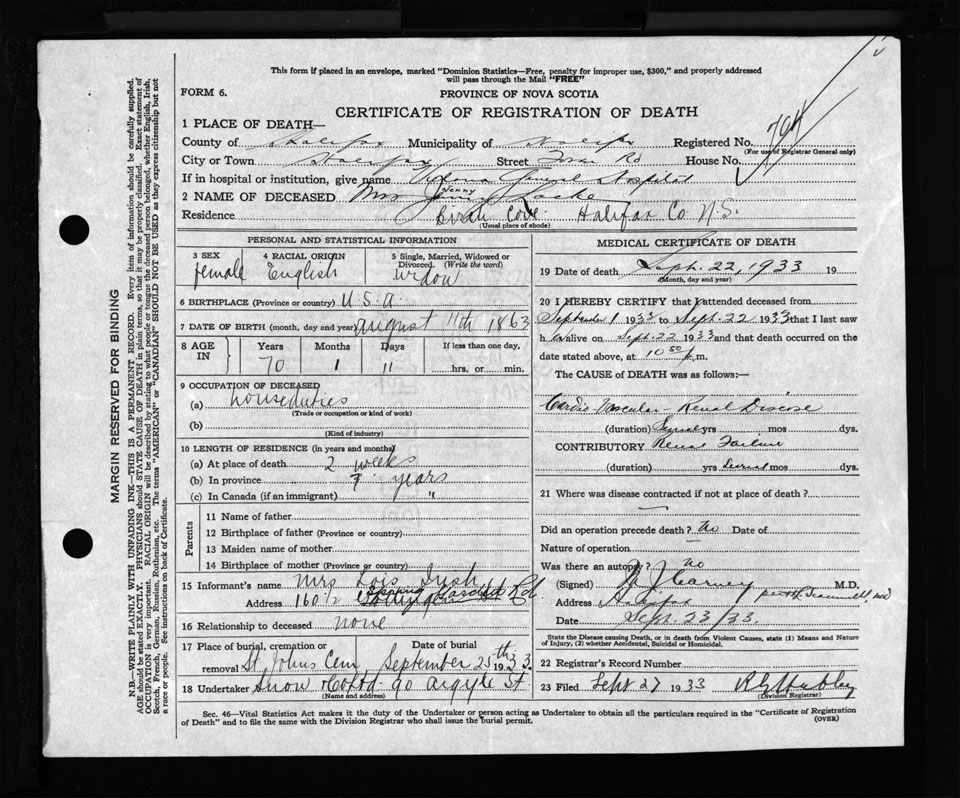 This form if placed in an envelope, marked "Dominion Statistics—Free, penalty for improper use, $300," and properly addressed
will pass through the Mail "FREE"
FORM 6.
PROVINCE OF NOVA SCOTIA
CERTIFICATE OF REGISTRATION OF DEATH
1 PLACE OF DEATH—
County of Halifax Municipality of Halifax Registered No.
(For use of Registrar General only)
City or Town Halifax Street Tower Rd House No.
If in hospital or institution, give name Victoria General Hospital
2 NAME OF DECEASED Mrs Jenny Locke
Residence Birch Cove Halifax Co N.S.
(Usual place of abode)
PERSONAL AND STATISTICAL INFORMATION
3 SEX female
4 RACIAL ORIGIN English
5 Single, Married, Widowed or Divorced. (Write the word) widow
6 BIRTHPLACE (Province or country) U.S.A.
7 DATE OF BIRTH (month, day and year) August 11th 1863
8 AGE IN
Years Months Days If less than one day,
70 1 11 hrs. or min.
9 OCCUPATION OF DECEASED
(a) houseduties
(Trade or occupation or kind of work)
(b)
(Kind of industry)
10 LENGTH OF RESIDENCE (in years and months)
(a) At place of death 2 weeks
(b) In province 7 years
(c) In Canada (if an immigrant) "
Parents
11 Name of father
12 Birthplace of father (Province or country)
13 Maiden name of mother
14 Birthplace of mother (Province or country)
15 Informant's name Mrs Lois
Address 160½ Spring Garden Rd.
16 Relationship to deceased none
17 Place of burial, cremation or removal St. Johns Cem
Date of burial September 25th 1933
18 Undertaker Snow Co Ltd. 90 Argyle St.
(Name and address)
MEDICAL CERTIFICATE OF DEATH
19 Date of death Sept. 22, 1933 19
(Month, day and year)
20 I HEREBY CERTIFY that I attended deceased from
September 1 1933 to Sept. 22 1933 that I last saw
h er alive on Sept 22 1933 and that death occurred on the
date stated above, at 10 50 p.m.
The CAUSE of DEATH was as follows:—
Cardio Vascular Renal Disease
(duration) Several yrs mos dys.
CONTRIBUTORY Renal Failure
(duration) yrs Several mos dys.
21 Where was disease contracted if not at place of death?
Did an operation precede death? No Date of
Nature of operation
Was there an autopsy? No
(Signed) J Carney M.D.
Address Halifax
Date Sept. 23/33.
State the Disease causing Death, or in death from Violent Causes, state (1) Means and Nature
of Injury, (2) whether Accidental, Suicidal or Homicidal.
22 Registrar's Record Number
23 Filed Sept 27 1933
(Division Registrar)
Sec. 46—Vital Statistics Act makes it the duty of the Undertaker or person acting as Undertaker to obtain all the particulars required in the "Certificate of Registration
of Death" and to file the same with the Division Registrar who shall issue the burial permit.
(OVER)
MARGIN RESERVED FOR BINDING
N.B.—WRITE PLAINLY WITH UNFADING INK—THIS IS A PERMANENT RECORD. Every item of information should be carefully supplied.
AGE should be stated EXACTLY. PHYSICIANS should STATE CAUSE OF DEATH in plain terms, so that it may be properly classified. Exact statement of
OCCUPATION is very important. RACIAL ORIGIN will be described by stating to what people or tongue the deceased person belonged, whether English, Irish,
Scotch, French, German, Russian, Ruthenian, etc. The terms "AMERICAN" or "CANADIAN" SHOULD NOT BE USED as they express citizenship but not
a race or people. See instructions on back of Certificate.